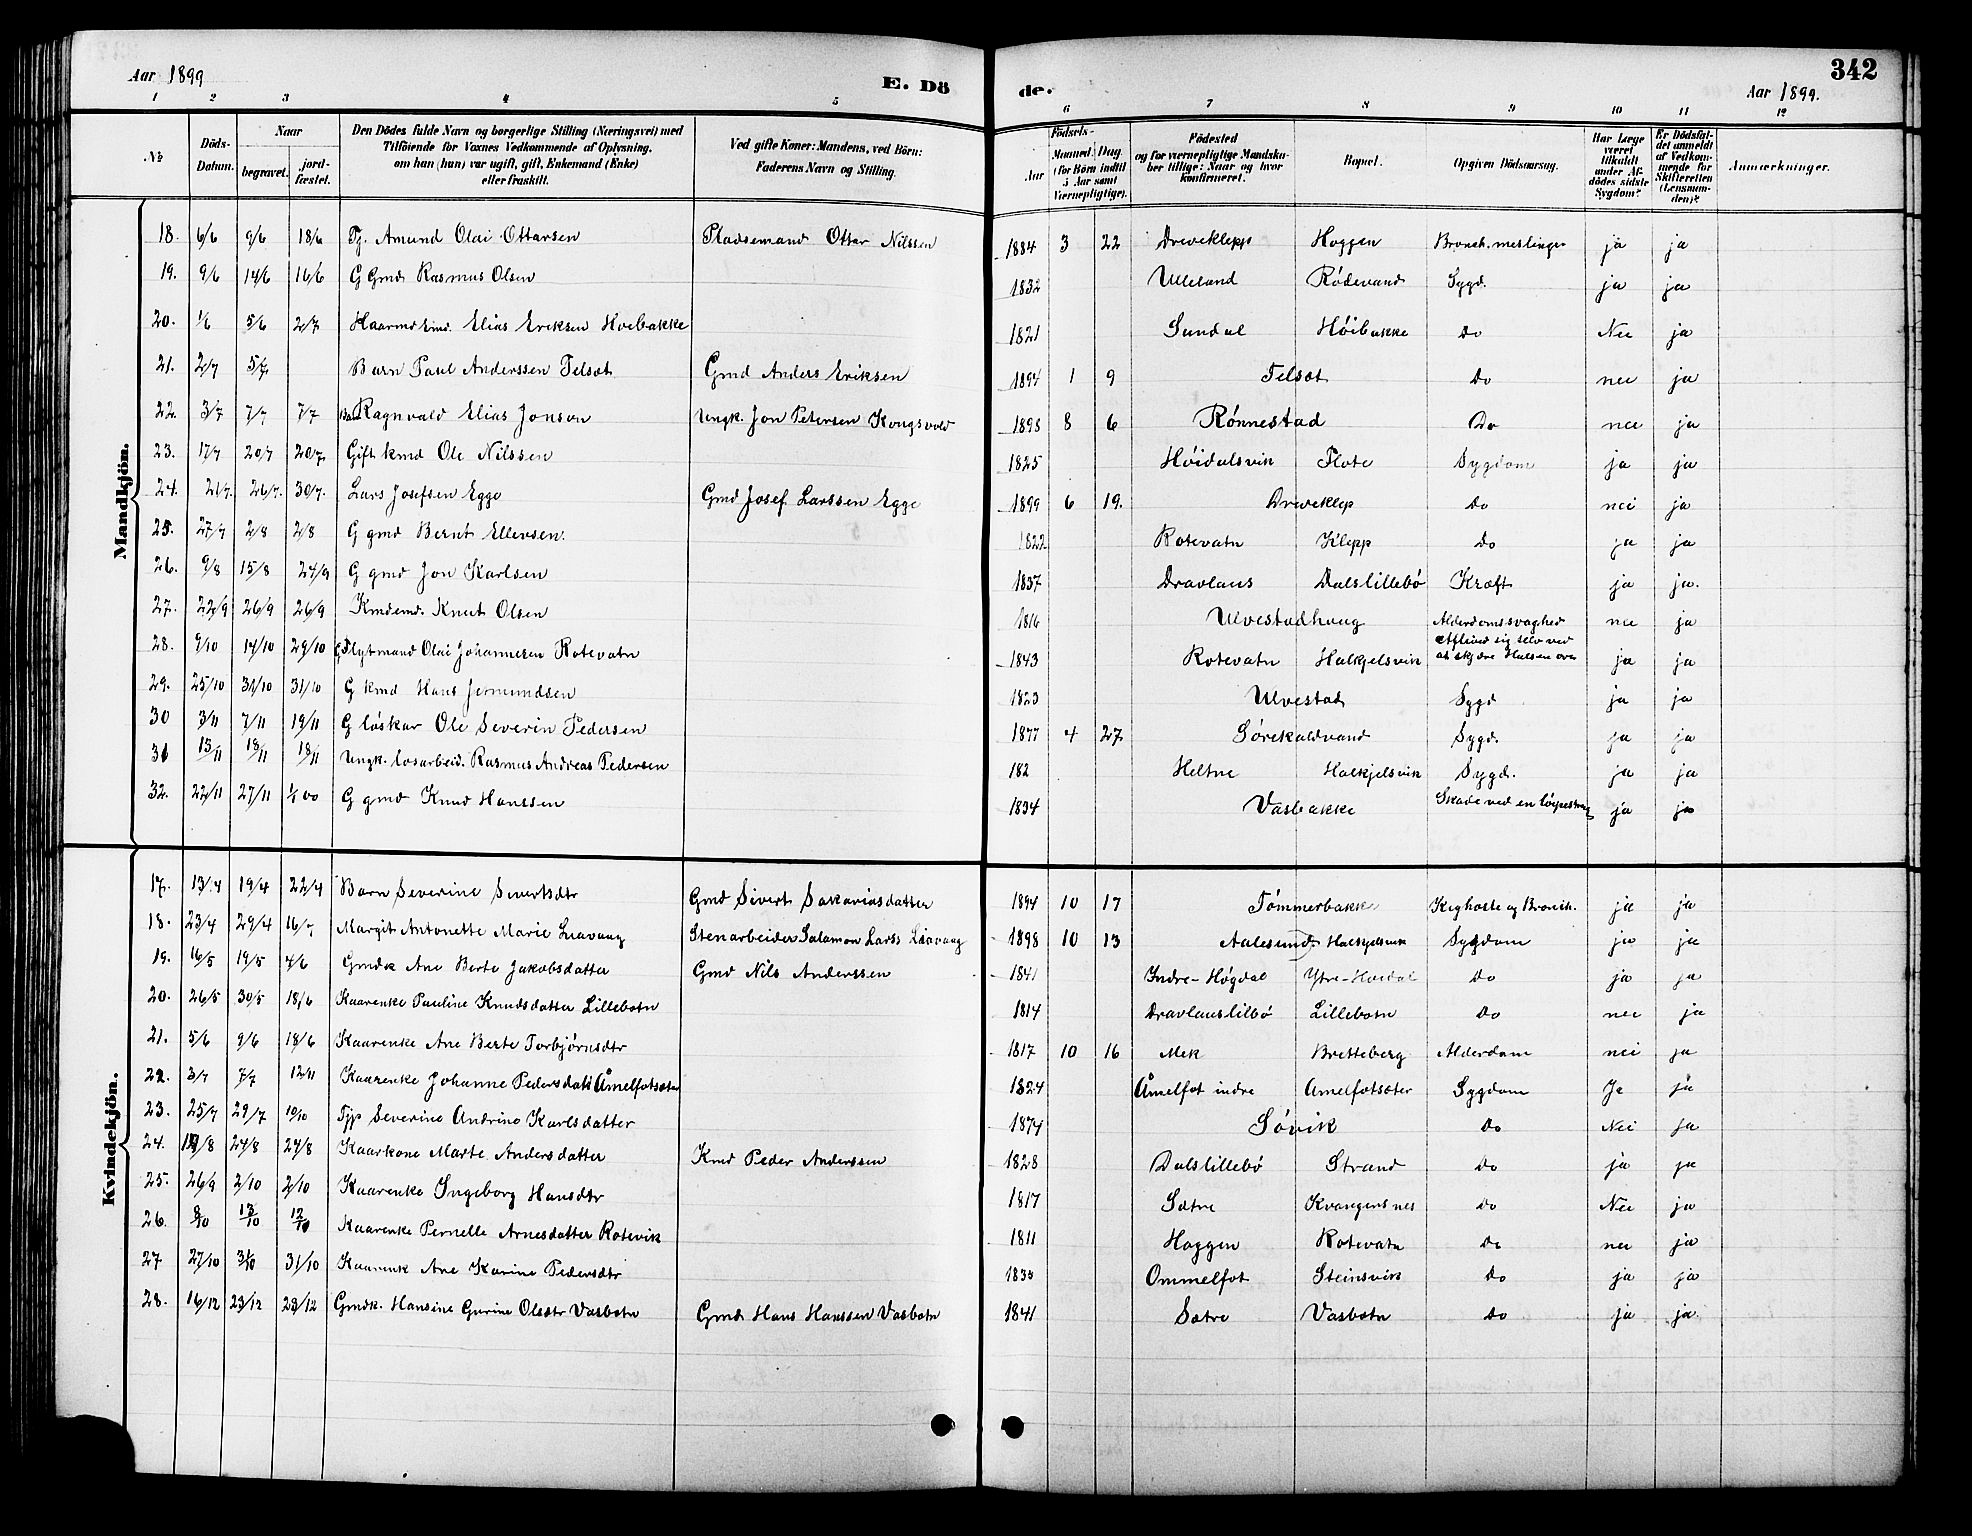 Aar 1899
E. Dö
de.
Aar 1899.
342
1 2 3 4 5 6 7 8 9 10 11 12
№
Döds-Datum.
Naar
begravet.
jordfæstet.
Den Dödes fulde Navn og borgerlige Stilling (Næringsvei) med
Tilföiende for Voxnes Vedkommende af Oplysning,
om han (hun) var ugift, gift, Enkemand (Enke)
eller fraskilt.
Ved gifte Koner: Mandens, ved Börn:
Faderens Navn og Stilling.
Födsels-
Aar
Maaned. Dag
(for Börn indtil
5 Aar samt
Værnepligtige).
Födested
og for værnepligtige Mandska-
ber tillige: Naar og hvor
konfirmeret.
Bopæl.
Opgiven Dödsaarsag.
Har Læge
været
tilkaldt
under Af-
dödes sidste
Sygdom?
Er Dödsfal-
det anmeldt
af Vedkom-
mende for
Skifteretten
(Lensman-
den)?
Anmærkninger.
Mandkjön.
18. 6/6 9/6 18/6 Tj. Amund Olai Ottarsen Pladsemand Ottar Nilssen 1884 3 22 Dreveklepp Hoggen Bronch. meslinger ja ja
19. 9/6 14/6 16/6 G Gmd Rasmus Olsen 1832 Ulleland Rödevand Sygd. ja ja
20. 1/6 5/6 2/7 Kaarmd Emd. Elias Eriksen Hoebakke 1821 Sundal Höibakke Do Nei ja
21. 2/7 5/7 Barn Paul Anderssen Felsæt Gmd Anders Eriksen 1894 1 9 Felsæt Do nei ja
22. 3/7 7/7 7/7 Ragnvald Elias Jonson Ungk. Jon Petersen Kongsvold 1898 8 6 Rönnestad Do nei ja
23. 17/7 20/7 20/7 Gift kmd Ole Nilssen 1825 Höidalsvik Flote Sygdom ja ja
24. 21/7. 26/7. 30/7. Lars Josefsen Egge Gmd Josef Larssen Egge 1899 6 19. Dreveklep Do nei ja
25. 27/7 2/8 2/8 G gmd Bernt Ellevsen. 1822 Rotevatn Klepp Do ja ja
26. 9/8 15/8 24/9 G gmd Jon Karlsen 1837 Dravlaus Dalslillebö Kræft ja ja.
27. 22/9 26/9 26/9 Kmdemd. Knut Olsen 1816 Ulvestadhaug Alderdomssvaghed nei ja
28. 9/10 14/10 29/10 Flytmand Olai Johannesen Rotevatn 1843 Rotevatn Halkjelsvik Aflived sig selv ved
at skjære Halsen over ja ja
29. 25/10 31/10 31/10 G kmd Hans Jermundsen 1823 Ulvestad Sygd ja ja
30 3/11 7/11 19/11 G löskar Ole Severin Pedersen 1877 4 27 Sörekaldvand Sygd. ja ja
31 13/11 18/11 18/11 Ungk. losarbeid. Rasmus Andreas Pedersen 182 Heltne Halkjelsvik Sygd. ja ja
32. 22/11 27/11 1/1 00 G gmd Knud Hanssen 1834 Vasbakke Skade ved en löipestreng ja ja
Kvindekjön.
17. 13/4 19/4 22/4 Barn Severine Severtsdtr Gmd Sivert Sakariasdatter 1894 10 17 Tömmerbakke Kighoste og Bronch. ja ja
18. 23/4 29/4 16/7 Margit Antonette Marie Liavaag Stenarbeider Salamon Larss Liavaag 1898 10 13 Aalesund Halkjelsvik Sygdom ja ja
19. 16/5 19/5 4/6 Gmdk Ane Berte Jakobsdatter Gmd Nils Anderssen 1841 Indre-Högdal Ytre-Hoidal Do ja ja
20. 26/5 30/5 18/6 Kaarenke Pauline Knudsdatter Lillebotn 1814 Dravlauslilbö Lillebotn Do nei ja
21. 5/6 9/6 18/6 Kaarenke Ane Berte Torbjörnsdtr 1817 10 16 Mek Bretteberg Alderdom nei ja
22. 3/7 7/7 12/11 Kaarenke Johanne Pedersdatt Åmelfotsæter 1824 Åmelfot indre Amelfotsæter Sygdom Ja ja
23. 25/7 29/7 10/10 Tjp Severine Andrine Karlsdatter 1874 Sövik Do Nei ja
24. 19/8 24/8 24/8 Kaarkone Marte Andersdatter Kmd Peder Anderssen 1828 Dalslillebö Strand Do ja ja
25. 26/9 2/10 2/10 Kaarenke Ingeborg Hansdtr 1817 Sætre Kvangersnes Do Nei ja
26. 8/10 13/10 12/10 Kaarenke Pernelle Arnesdatter Rotevik 1811 Hoggen Rotevatn Do nei ja
27 27/10 31/10 31/10 Kaarenk Ane Karine Pedersdtr 1835 Ommelfot Steinsvik Do ja ja
28. 16/12 23/12 23/12 Gmdk. Hansine Gurine Olsdtr Vasbotn Gmd Hans Hanssen Vasbotn 1841 Sætre Vasbotn Do ja ja